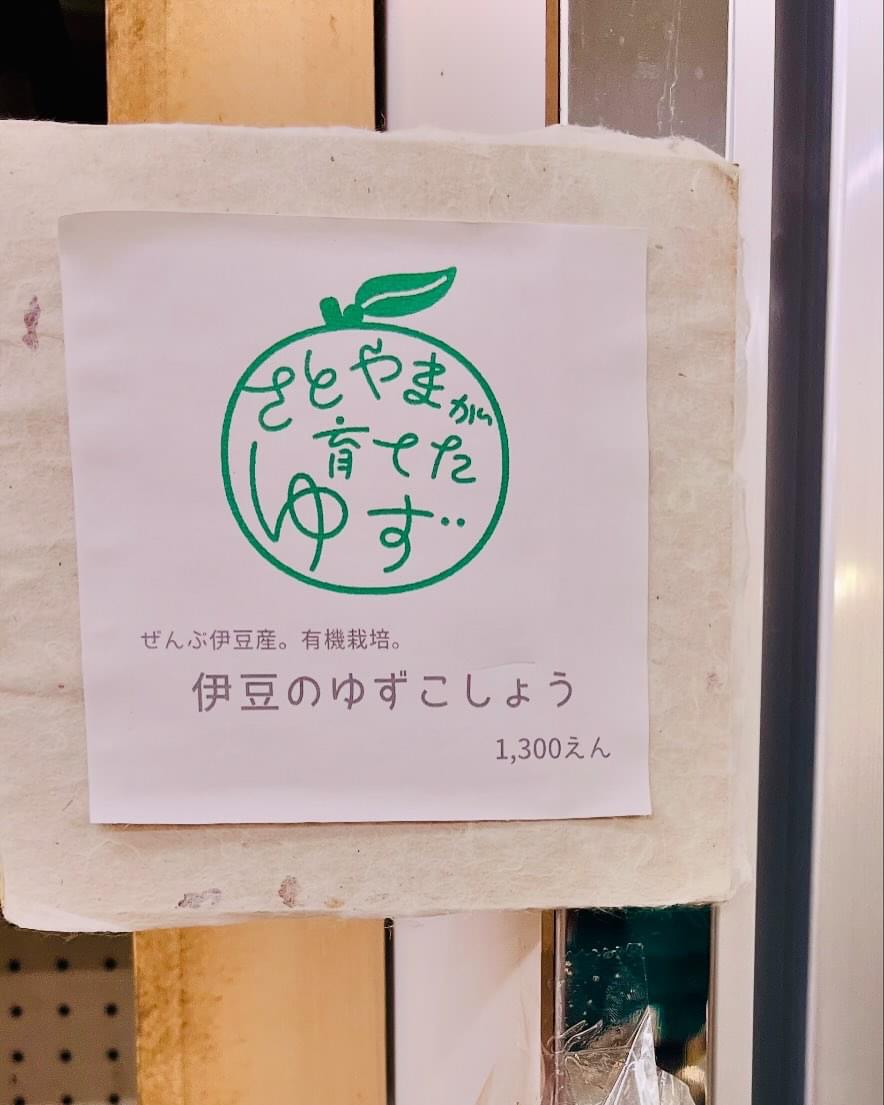 さとやまが
育てた
ゆず
ぜんぶ伊豆産。有機栽培。
伊豆のゆずこしょう
1,300えん